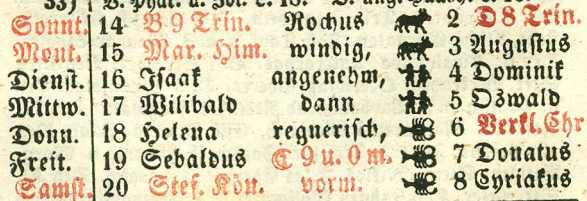 Sonnt. 14 B 9 Trin. Rochus 2 D 8 Trin.
Mont. 15 Mar. Him. windig, 3 Augustus
Dienst. 16 Isaak angenehm, 4 Dominik
Mittw. 17 Wilibald dann 5 Oswald
Donn. 18 Helena regnerisch, 6 Verkl. Chr
Freit. 19 Sebaldus ☾ 9 u. 0 m. 7 Donatus
Samst. 20 Stef. Kön. vorm. 8 Cyriakus